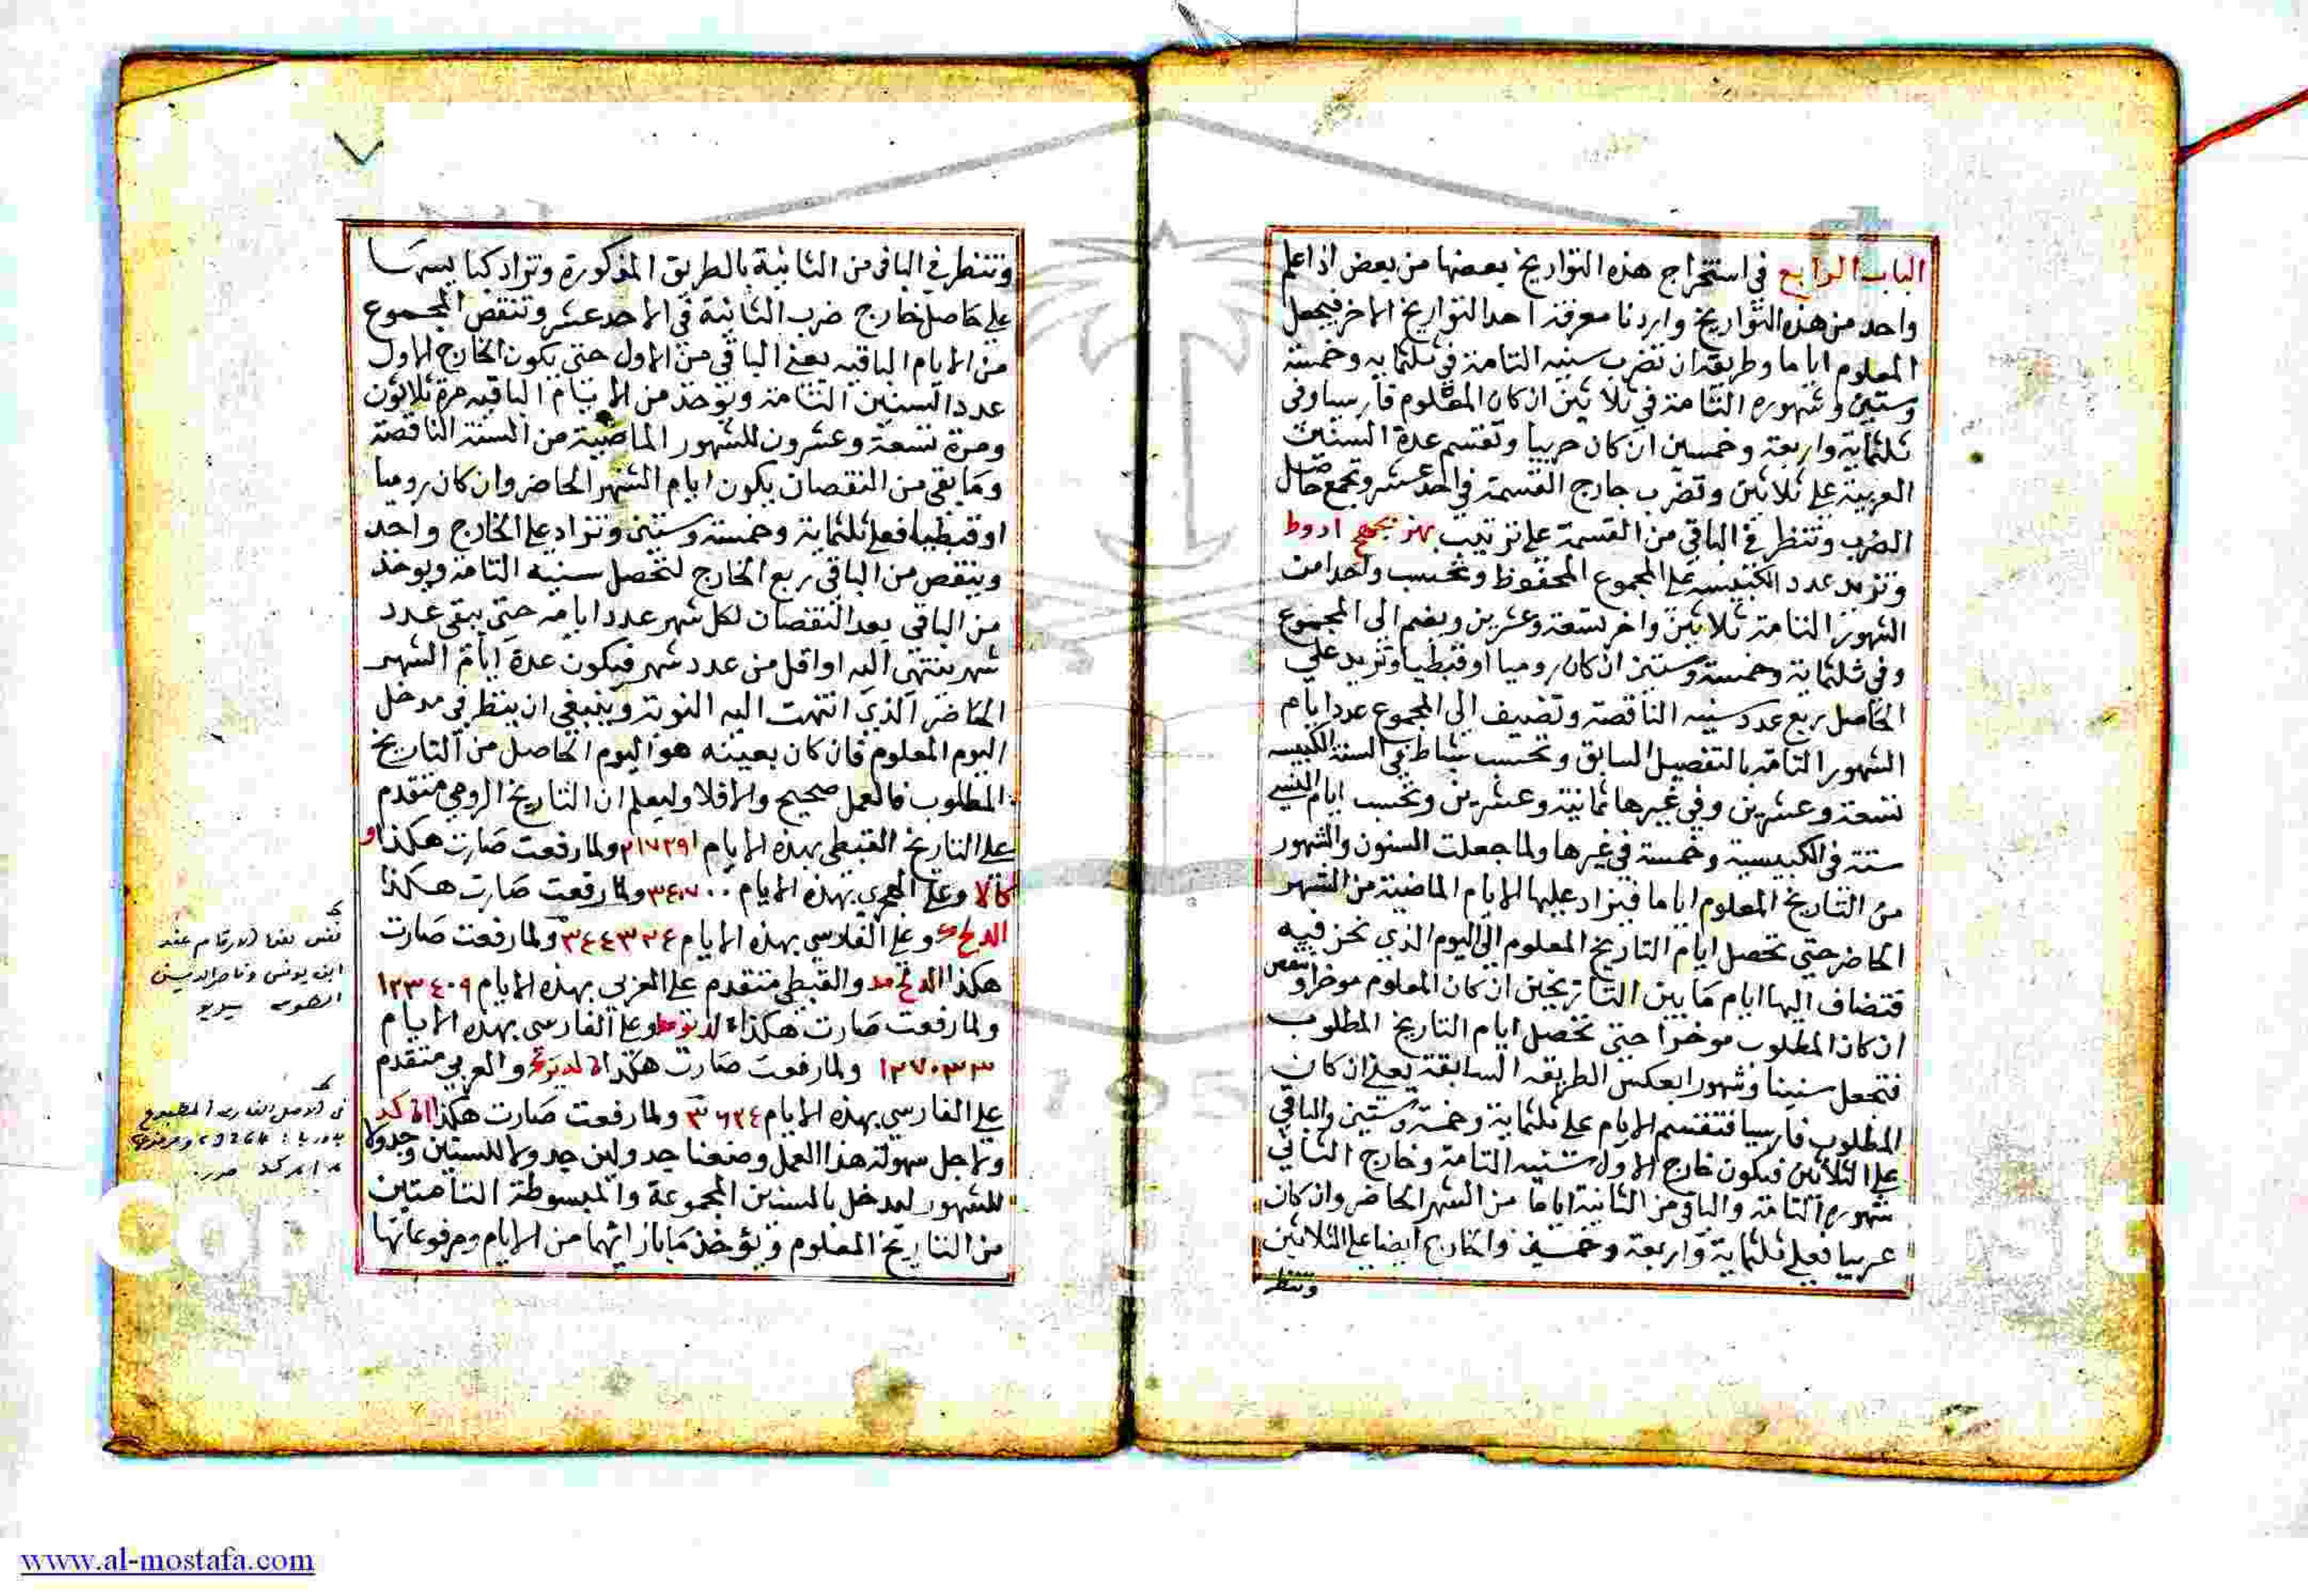 الباب الرابع في استخراج هذه التواريخ بعضها من بعض اذا علم
واحد من هذه التواريخ واردنا معرفة احد التواريخ الاخر فيجعل
المعلوم اياما وطريقه ان تضرب سنيه التامة في ثلثمايه وخمسة
وستين وشهوره التامة في ثلاثين ان كان المعلوم فارسيا وفى
ثلثماية واربعة وخمسين ان كان عربيا وتقسم عدة السنين
العربية على ثلاثين وتضرب خارج القسمة في احد عشر وتجمع حاصل
الضرب وتنظر في الباقي من القسمة على ترتيب بهز يجهح ادوط
وتزيد عدد الكبيسه على المجموع المحفوظ وتحسب واحدا من
الشهور التامة ثلاثين واخر تسعة وعشرين ويضم الى المجموع
وفي ثلثماية وخمسة وستين ان كان روميا او قبطيا وتزيد على
الحاصل ربع عدد سنيه الناقصة وتضيف الى المجموع عدد ايام
الشهور التامة بالتفصيل السابق وتحسب شباط في السنة الكبيسه
تسعة وعشرين وفي غيرها ثمانية وعشرين وتحسب ايام النسي
ستة في الكبيسية وخمسة في غيرها ولما جعلت السنون والشهور
من التاريخ المعلوم اياما فيزاد عليها الايام الماضية من الشهر
الحاضر حتى تحصل ايام التاريخ المعلوم الى اليوم الذي نحن فيه
فتضاف اليها ايام ما بين التاريخين ان كان المعلوم موخرا وتنقص
ان كان المطلوب موخرا حتى تحصل ايام التاريخ المطلوب
فتجعل سنينا وشهورا بعكس الطريقه السابقة يعنى ان كان
المطلوب فارسيا فتقسم الايام على ثلثماية وخمسة وستين والباقي
على الثلاثين فيكون خارج الاول سنيه التامة وخارج الثاني
شهوره التامة والباقي من الثانية اياما من الشهر الحاضر وان كان
عربيا فعلى ثلثماية واربعة وخمسين والخارج ايضا على الثلاثين
وتنظر
وتنظر في الباقي من الثانية بالطريق المذكورة وتزاد كبايسها
على حاصل خارج ضرب الثانية في الاحد عشر وتنقص المجموع
من الايام الباقيه يعنى الباقي من الاول حتى يكون الخارج الاول
عدد السنين التامة ويوخذ من الايام الباقيه مرة ثلاثون
ومرة تسعة وعشرون للشهور الماضية من السنة الناقصة
وما بقي من النقصان يكون ايام الشهر الحاضر وان كان روميا
او قبطيا فعلى ثلثماية وخمسة وستين وتزاد على الخارج واحد
وينقص من الباقي ربع الخارج لتحصل سنيه التامة ويوخذ
من الباقي بعد النقصان لكل شهر عدد ايامه حتى يبقى عدد
شهر ينتهي اليه او اقل من عدد شهر فيكون عدة ايام الشهر
الحاضر الذي انتهت اليه النوبة وينبغي ان ينظر في مدخل
اليوم المعلوم فان كان بعينه هو اليوم الحاصل من التاريخ
المطلوب فالعمل صحيح والا فلا وليعلم ان التاريخ الرومي متقدم
على التاريخ القبطي بهذه الايام ٢١٧٢٩١ ولما رفعت صارت هكذا
وعلى الهجري بهذه الايام ٣٤٠٧٠٠ ولما رفعت صارت هكذا
وعلى الفارسي بهذه الايام ٣٤٤٣٢٤ ولما رفعت صارت
هكذا والقبطي متقدم على العربي بهذه الايام ١٢٣٤٠٩
ولما رفعت صارت هكذا وعلى الفارسي بهذه الايام
١٢٧٠٣٣ ولما رفعت صارت هكذا والعربي متقدم
على الفارسي بهذه الايام ٣٦٢٤ ولما رفعت صارت هكذا
ولاجل سهولة هذا العمل وضعنا جدولين جدولا للسنين وجدولا
للشهور ليدخل بالسنين المجموعة والمبسوطة التامتين
من التاريخ المعلوم ويؤخذ ما بازائهما من الايام ومرفوعاتها
ابن يونس وناصر الدين
www.al-mostafa.com